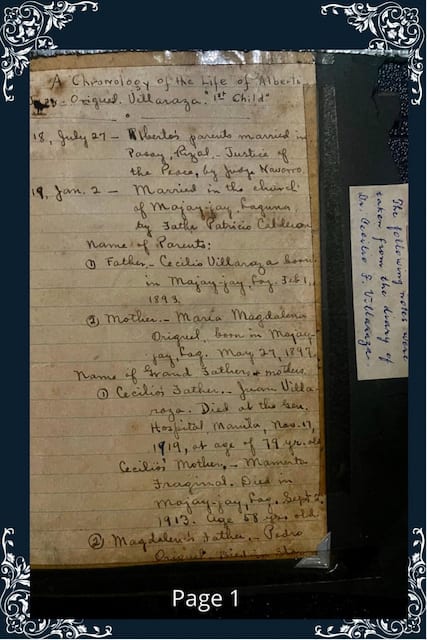 A Chronology of the Life of Alberto
Origuel Villaraza. "1st Child"
18, July 27 – Alberto's parents married in
Pasay, Rizal – Justice of
the Peace, by Judge Navarro.
19, Jan. 2 – Married in the church
of Majay-jay, Laguna,
by Father Patricio Calderon
Name of Parents:
① Father – Cecilio Villaraza born
in Majay-jay, Lag. Feb. 1,
1893.
② Mother – Maria Magdalena
Origuel, born in Majay-
jay, Lag. May 27, 1897.
Name of Grand Fathers & mothers
① Cecilio's Father – Juan Villa-
raza. Died at the Gen.
Hospital, Manila, Nov. 17,
1919, at age of 79 yr. old
Cecilio's Mother – Mamerta
Fraginal. Died in
Majay-jay, Lag. Sept 2,
1913. Age 58 yrs. old.
② Magdalena's Father – Pedro
Origuel
The following notes were
taken from the diary of
Dr. Cecilio F. Villaraza.
Page 1